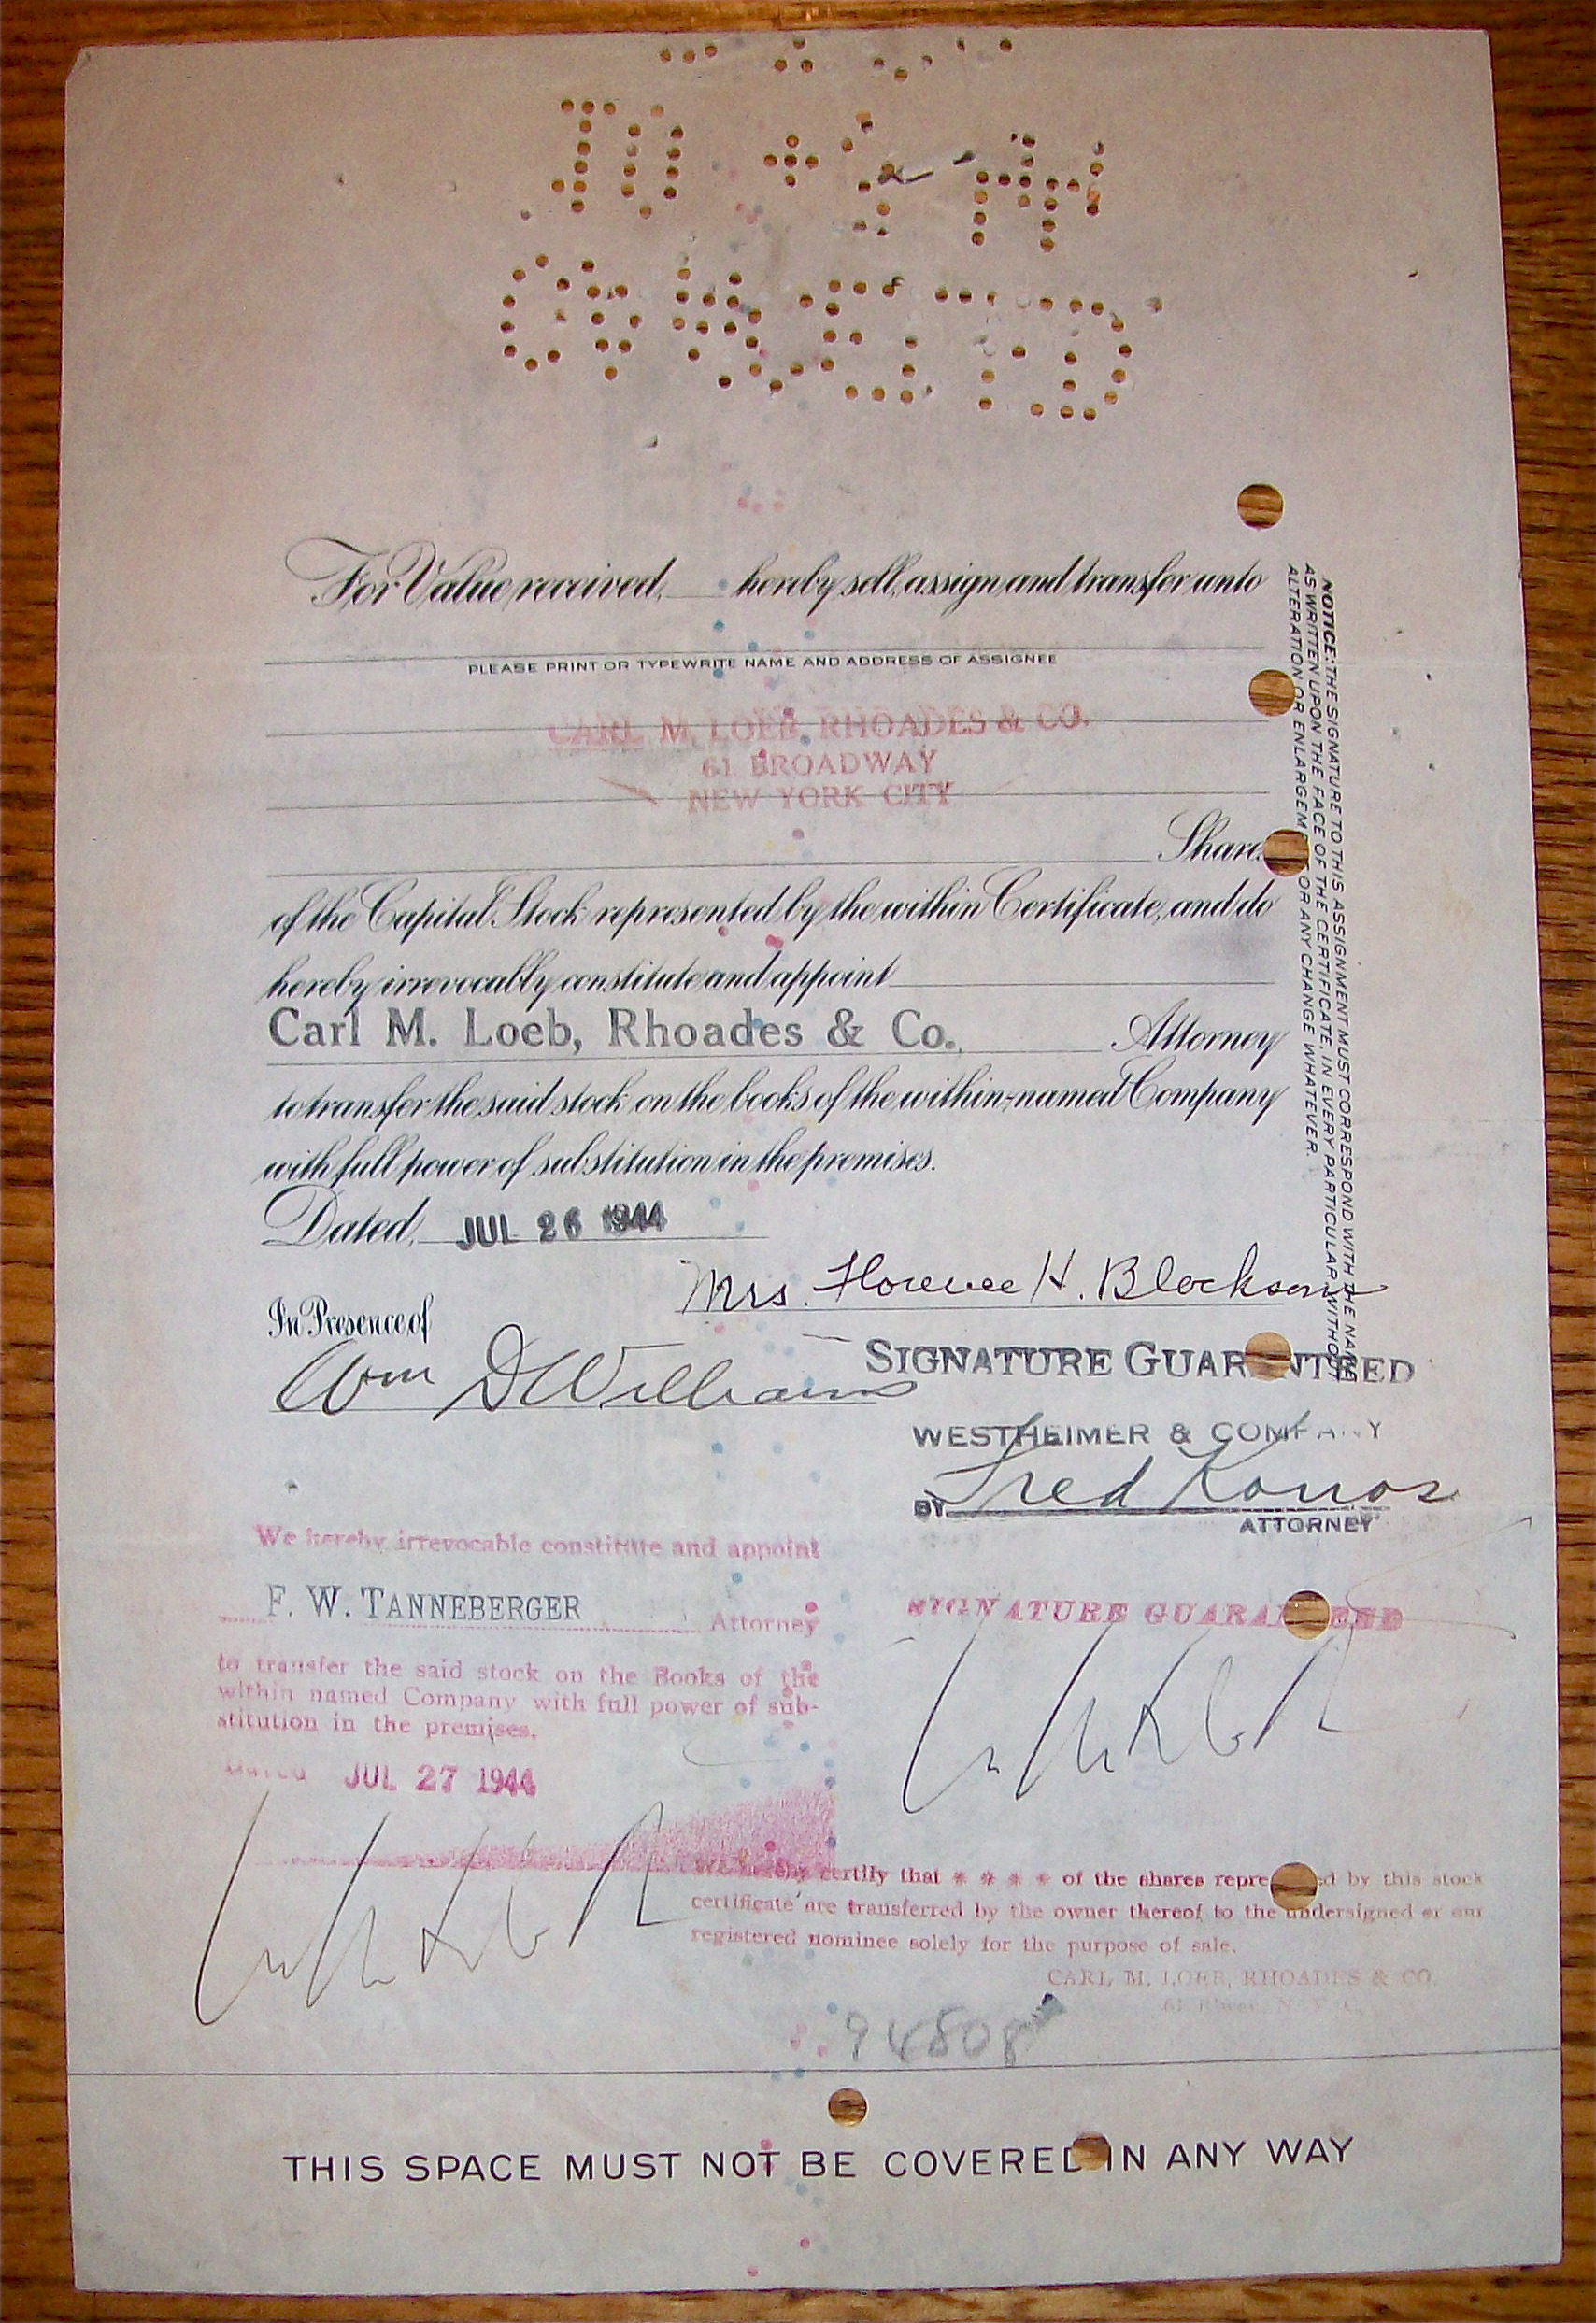 For Value received, hereby sell, assign and transfer unto
PLEASE PRINT OR TYPEWRITE NAME AND ADDRESS OF ASSIGNEE
CARL M. LOEB, RHOADES & CO.
61 BROADWAY
NEW YORK CITY
Shares
of the Capital Stock represented by the within Certificate, and do
hereby irrevocably constitute and appoint
Carl M. Loeb, Rhoades & Co. Attorney
to transfer the said stock on the books of the within-named Company
with full power of substitution in the premises.
Dated, JUL 26 1944
Mrs. Florence H. Blocksom
In Presence of
Wm D Williams
SIGNATURE GUARANTEED
WESTHEIMER & COMPANY
BY Fred Konos
ATTORNEY
NOTICE: THE SIGNATURE TO THIS ASSIGNMENT MUST CORRESPOND WITH THE NAME
AS WRITTEN UPON THE FACE OF THE CERTIFICATE, IN EVERY PARTICULAR, WITHOUT
ALTERATION OR ENLARGEMENT OR ANY CHANGE WHATEVER.
We hereby irrevocable constitute and appoint
F. W. TANNEBERGER Attorney
to transfer the said stock on the Books of the
within named Company with full power of sub-
stitution in the premises.
Dated JUL 27 1944
SIGNATURE GUARANTEED
We hereby certify that * * * * of the shares represented by this stock
certificate are transferred by the owner thereof to the undersigned or our
registered nominee solely for the purpose of sale.
CARL M. LOEB, RHOADES & CO.
94808
THIS SPACE MUST NOT BE COVERED IN ANY WAY